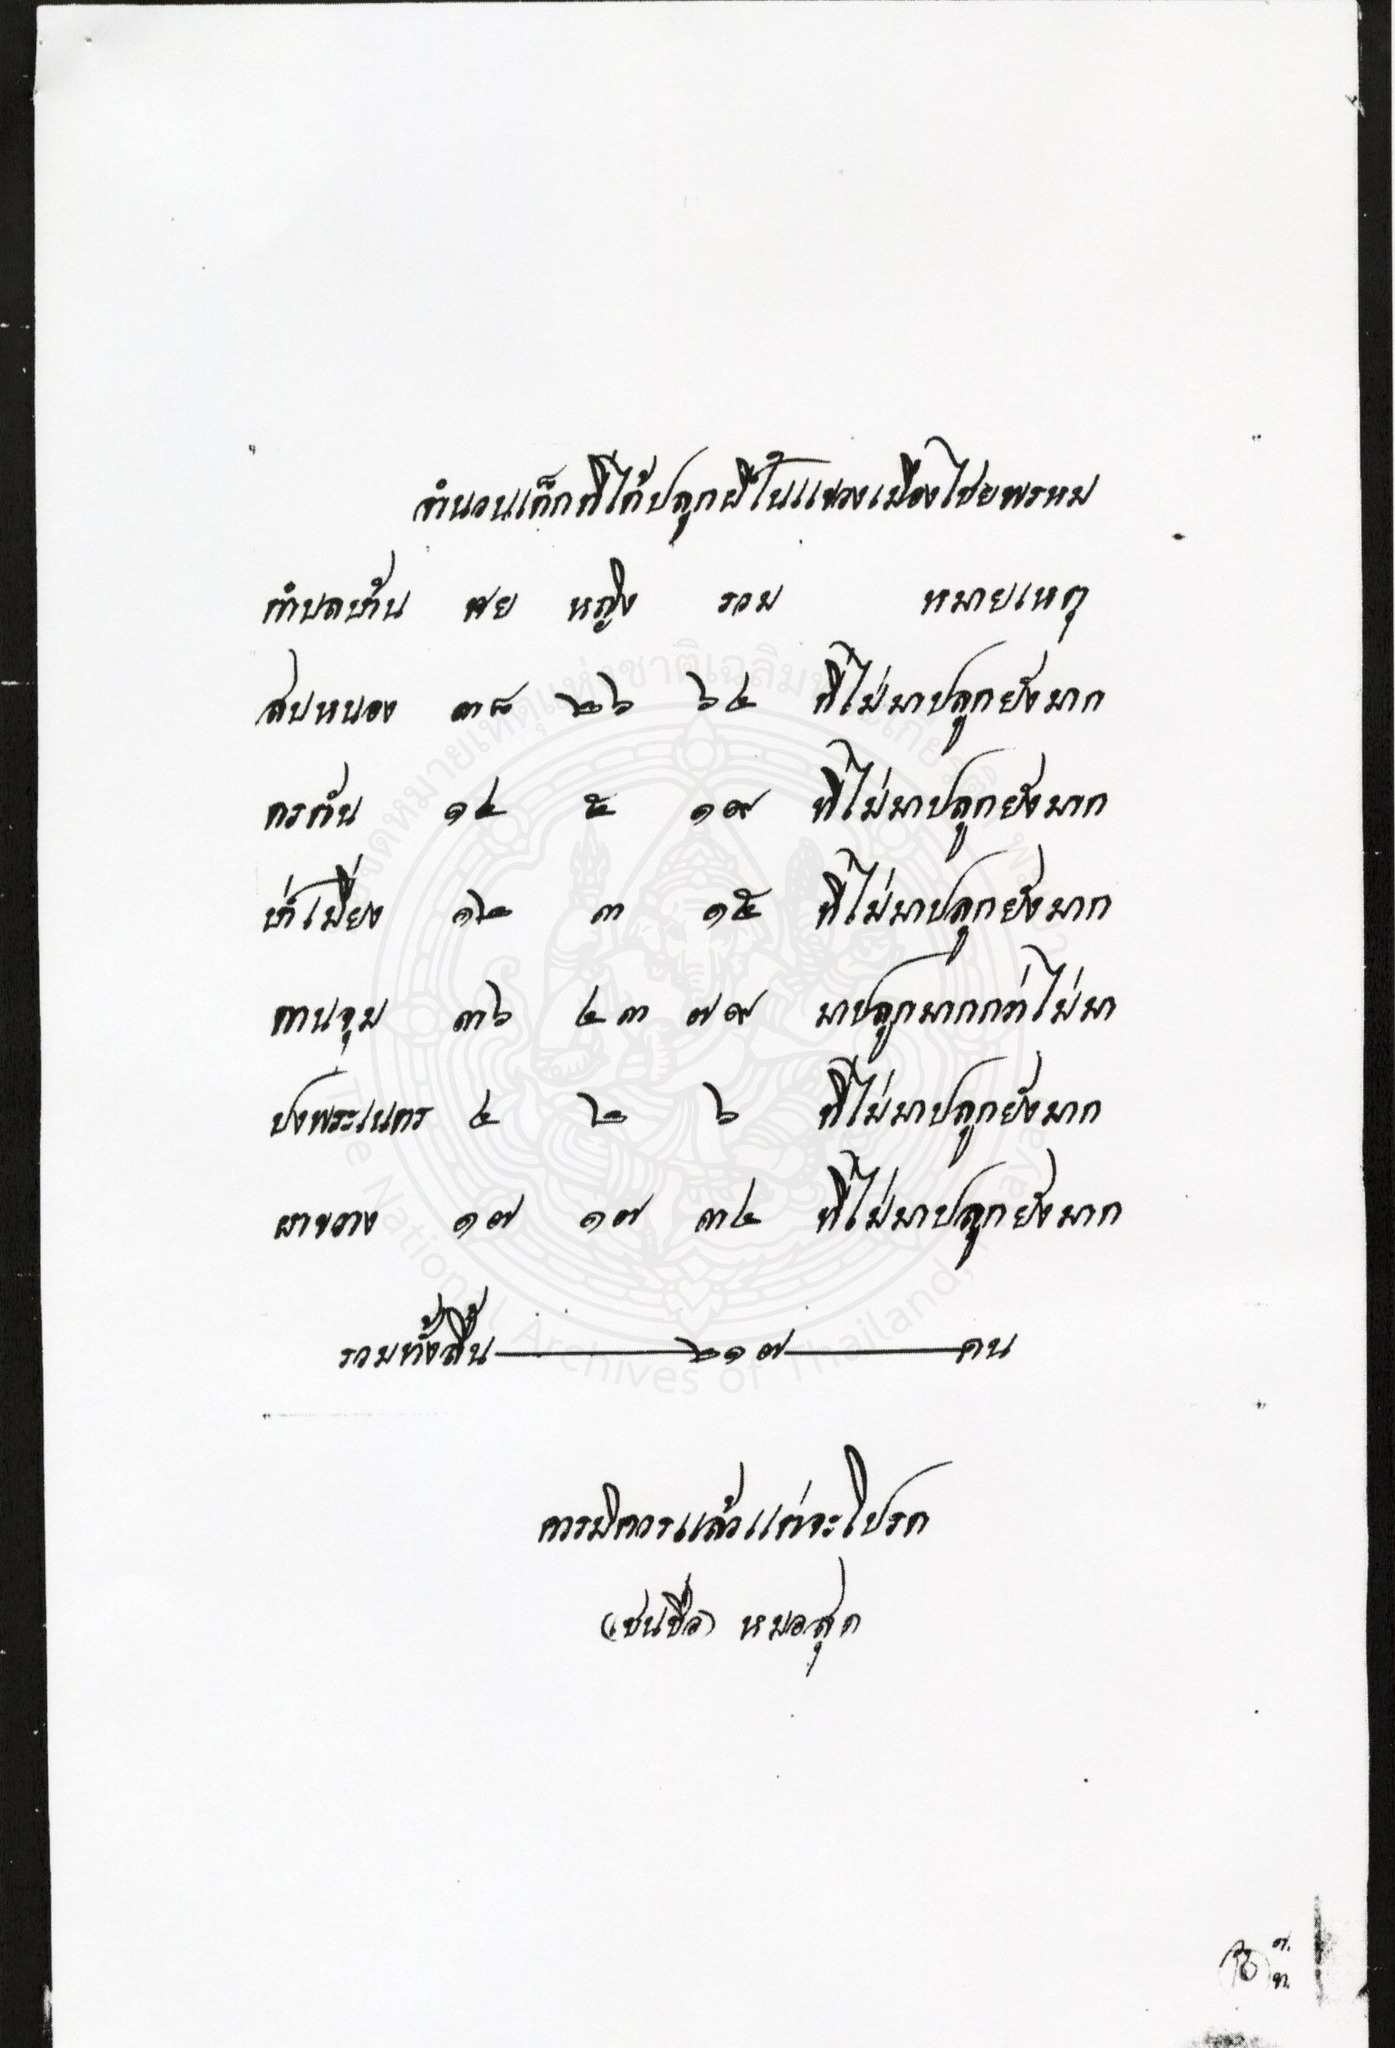 จำนวนเด็กที่ได้ปลูกฝีในแขวงเมืองไชยพรหม
ตำบลบ้าน ชาย หญิง รวม หมายเหตุ
สบหนอง ๓๘ ๒๖ ๖๔ ที่ไม่มาปลูกยังมาก
๑๔ ๕ ๑๙ ที่ไม่มาปลูกยังมาก
๑๒ ๓ ๑๕ ที่ไม่มาปลูกยังมาก
๓๖ ๔๓ ๗๙ มาปลูกมากกว่าไม่มา
ปงพระเนตร ๔ ๒ ๖ ที่ไม่มาปลูกยังมาก
ผาขวาง ๑๗ ๑๗ ๓๔ ที่ไม่มาปลูกยังมาก
รวมทั้งสิ้น ๒๑๗ คน
ควรมิควรแล้วแต่จะโปรด
(เซนชื่อ) หมอสุด
หอจดหมายเหตุแห่งชาติเฉลิมพระเกียรติ
The National Archives of Thailand,